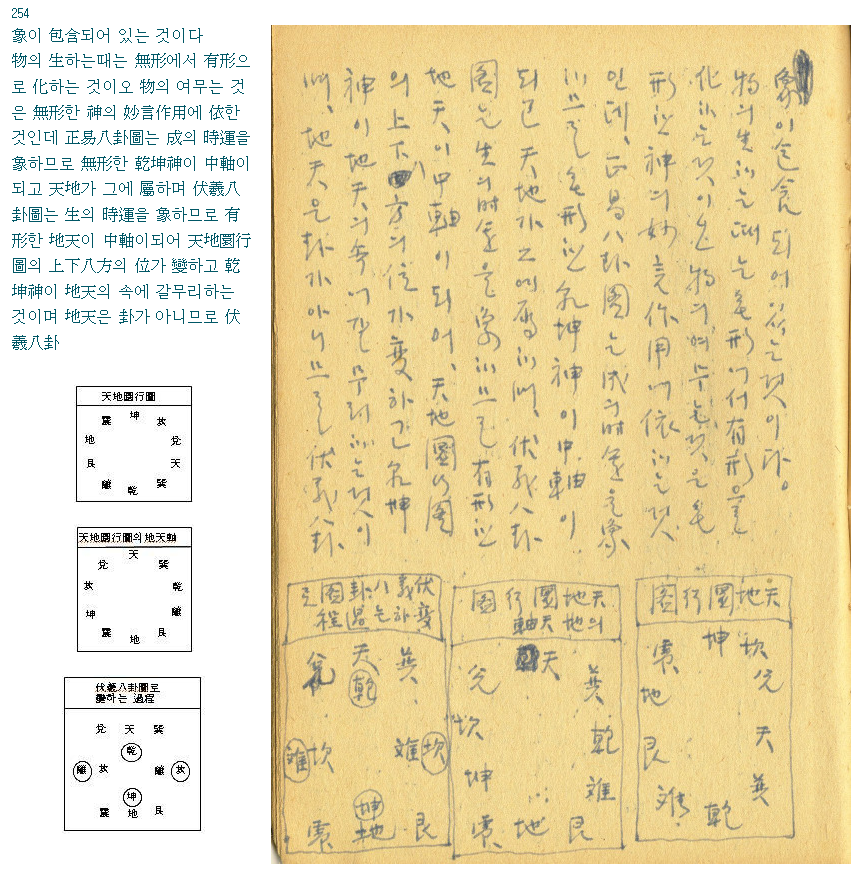 254
象이 包含되어 있는 것이다
物의 生하는때는 無形에서 有形으
로 化하는 것이오 物의 여무는 것
은 無形한 神의 妙言作用에 依한
것인데 正易八卦圖는 成의 時運을
象하므로 無形한 乾坤神이 中軸이
되고 天地가 그에 屬하며 伏羲八
卦圖는 生의 時運을 象하므로 有
形한 地天이 中軸이되어 天地圜行
圖의 上下八方의 位가 變하고 乾
坤神이 地天의 속에 갈무리하는
것이며 地天은 卦가 아니므로 伏
羲八卦
天地圜行圖
震 坤 坎
地 兌
艮 天
離 乾 巽
天地圜行圖의 地天軸
兌 天 巽
坎 乾
坤 離
震 地 艮
伏羲八卦圖로
變하는 過程
兌 天 巽
乾
離 坎 離 坎
坤
震 地 艮
象이 包含되어 있는 것이다。
物의 生하는 때는 無形에서 有形으로
化하는 것이오 物의 여무는 것은 無
形한 神의 妙言作用에 依하는 것
인데、正易八卦圖는 成의 時運을 象
하므로 無形한 乾坤神이 中軸이
되고 天地가 그에 屬하며、伏羲八卦
圖는 生의 時運을 象하므로 有形한
地天이 中軸이 되어、天地圜行圖
의 上下八方의 位가 變하고 乾坤
神이 地天의 속에 갈무리하는 것이
며、地天은 卦가 아니므로 伏羲八卦
天地圜行圖
震 坤 坎
地 兌
艮 天
離 乾 巽
天地圜行圖
의 地天軸
兌 天 巽
坎 乾
坤 離
震 地 艮
伏羲八卦圖로
變하는 過程
兌 天 巽
乾
離 坎 離 坎
坤
震 地 艮